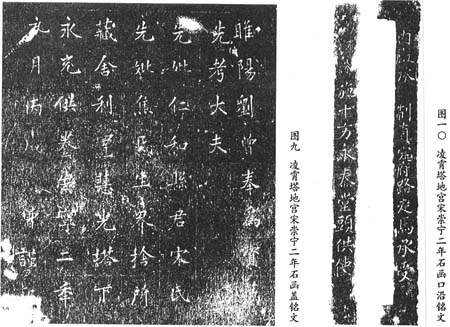 图一〇 凌霄塔地宫宋崇宁二年石函口沿铭文
内殿承制真定府路走馬承受
施十方永泰堂頭供使
图九 凌霄塔地宫宋崇宁二年石函盖铭文
睢陽劉曾奉為
先考大夫
先妣仁和縣君宋氏
先妣焦氏生界捨所
藏舍利至慧光塔下
永充供養崇寧二年
九月丙戌